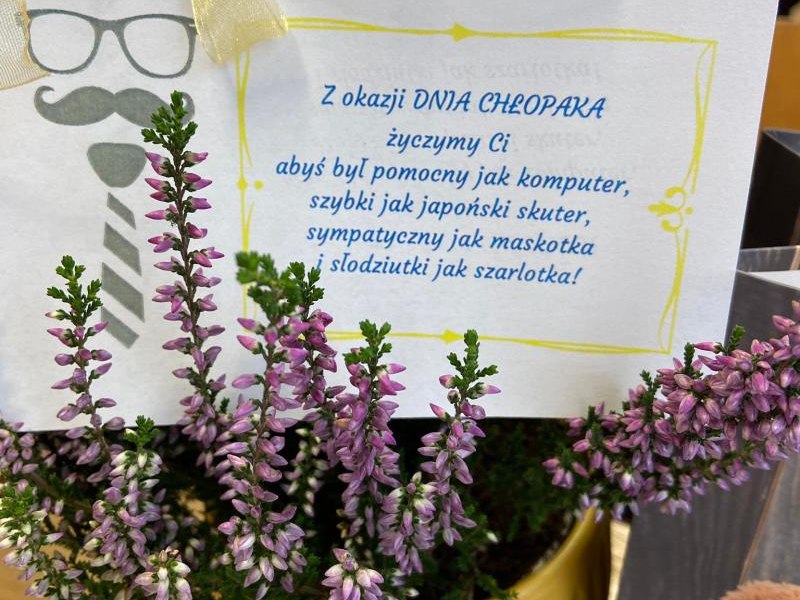 Z okazji DNIA CHŁOPAKA
życzymy Ci
abyś był pomocny jak komputer,
szybki jak japoński skuter,
sympatyczny jak maskotka
i słodziutki jak szarlotka!